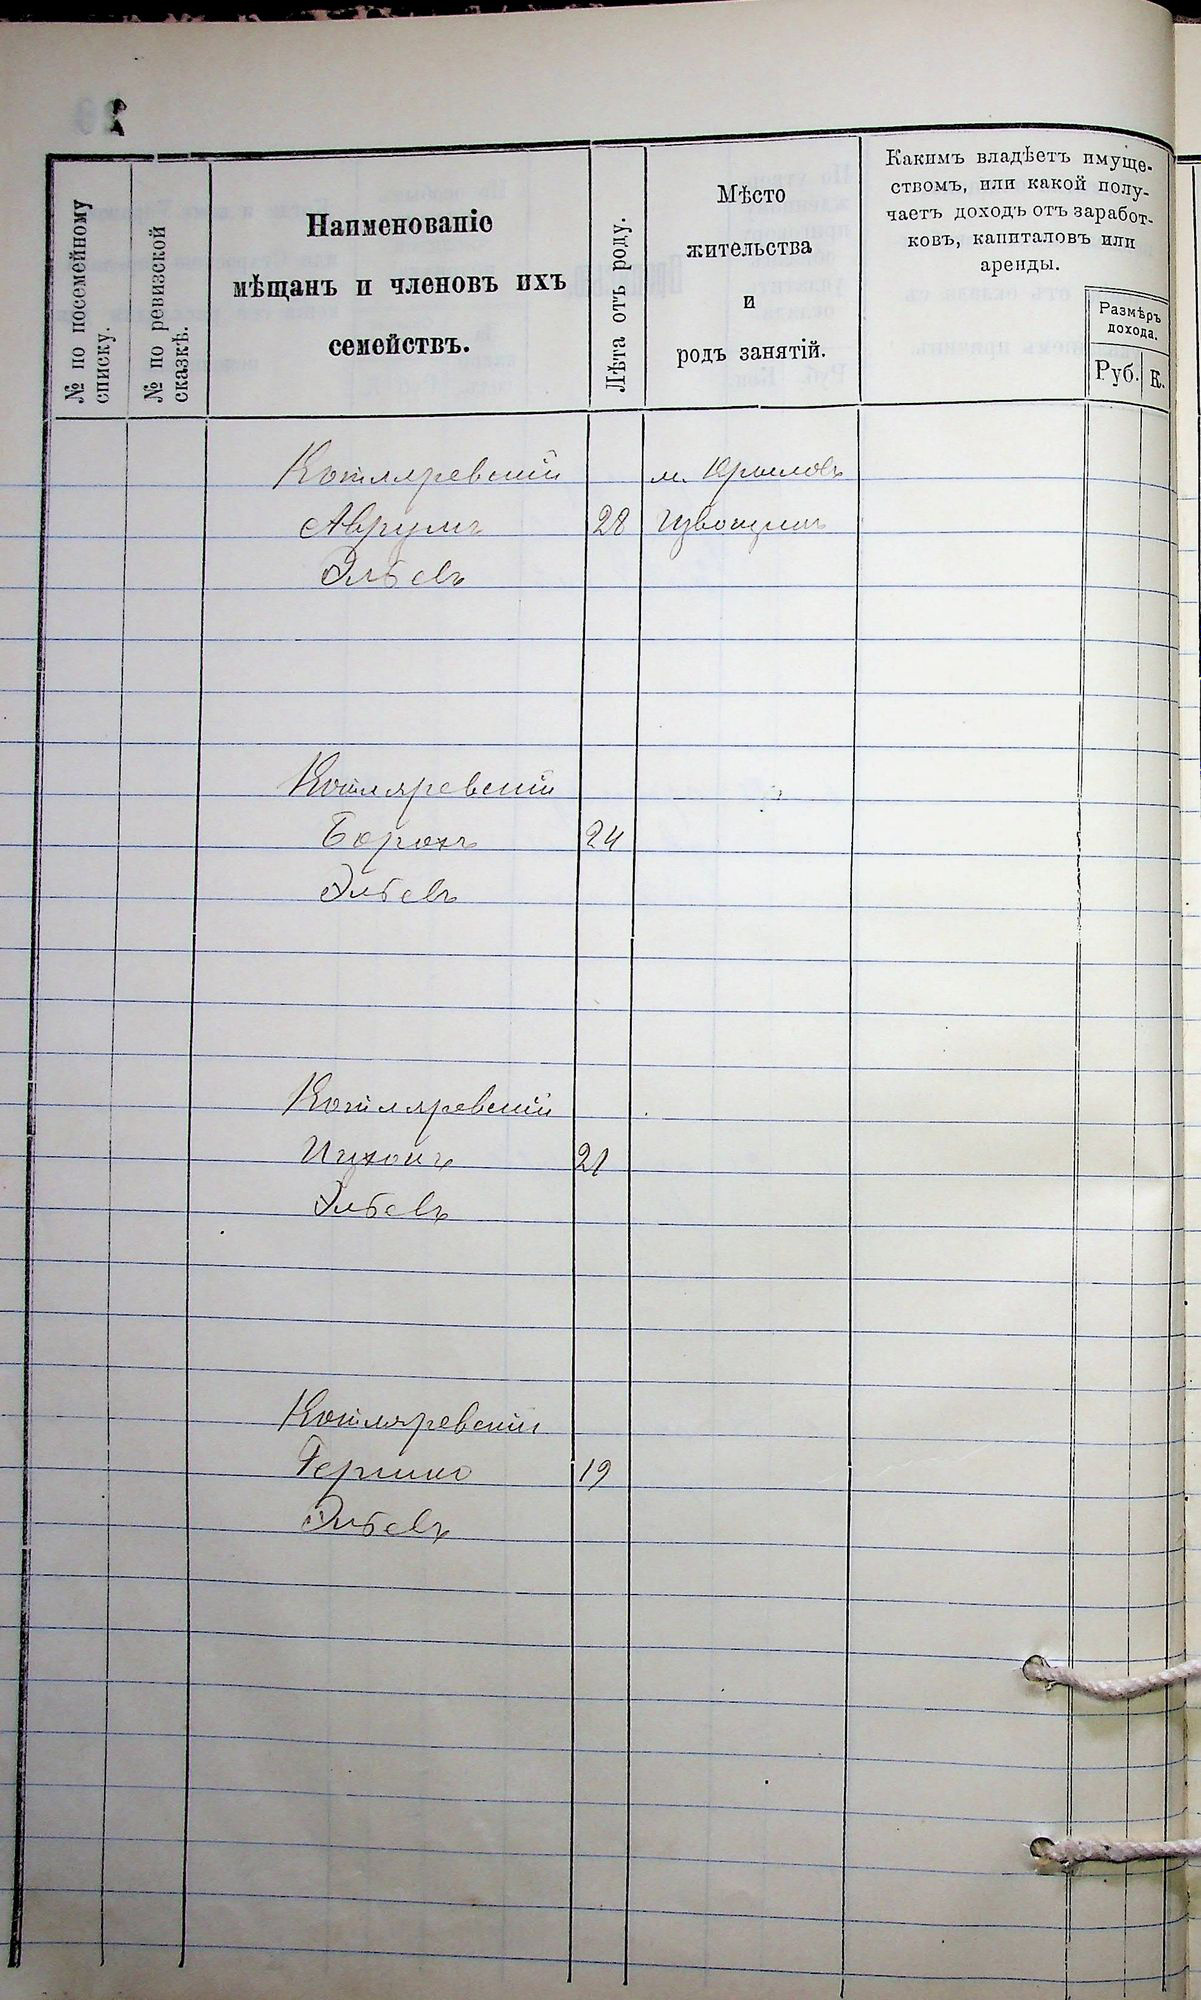 № по посемейному
списку.
№ по ревизской
сказкѣ.
Наименованіе
мѣщанъ и членовъ ихъ
семействъ.
Лѣта отъ роду.
Мѣсто
жительства
и
родъ занятій.
Какимъ владѣетъ имуще-
ствомъ, или какой полу-
чаетъ доходъ отъ заработ-
ковъ, капиталовъ или
аренды.
Размѣръ
дохода.
Руб. К.
Котляревскій м. Крыловъ
Аврумъ 28 Извощикъ
Эльевъ
Котляревскій
Борохъ 24
Эльевъ
Котляревскій
Ицхокъ 21
Эльевъ
Котляревскій
Гершко 19
Эльевъ